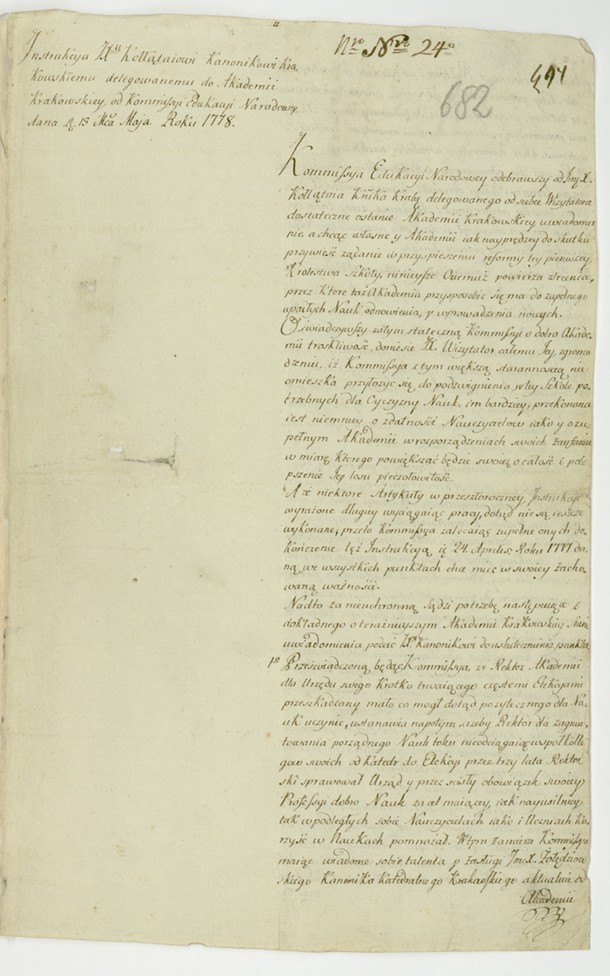 Nro Nro 24o
494
682
Instrukcya Xu Kołłątaiowi Kanonikowi Kra
kowskiemu delegowanemu do Akademii
Krakowskiey, od Kommissyi Edukacyi Narodowey
dana d. 15 Mca Maja Roku 1778.
Kommissya Edukacyi Narodowey odebrawszy od Jmć X.
Kołłątaia Knka Krakg delegowanego od siebie Wizytatora
dostateczne ostanie Akademii Krakowskiey uwiadomie
nie, a chcąc własne y Akademii iak nayprędzey do skutku
przywieść żądanie w przyspieszeniu reformy tey pierwszey
Krolestwa Szkoły, ninieysze Onemuż powierza zlecenie,
przez ktore taż Akademia przysposobić się ma do zupełnego
upadłych Nauk odnowienia, y wprowadzenia nowych.
Oświadczywszy zatym stateczną Kommissyi o dobro Akade
mii troskliwość, doniesie X. Wizytator całemu Jey zgroma
dzeniu, iż Kommissya z tym większą starannością nie
omieszka przyłożyć się do podzwignienia w tey Szkole po
trzebnych dla Oyczyzny Nauk, im bardziey przekonana
iest niemniey o zdatności Nauczycielow iako y o zu
pełnym Akademii w rozporządzeniach swoich zaufaniu
w miarę, ktorego powiększać będzie swoię o całość i pole
pszenie Jey losu pieczołowitość.
A że niektore Artykuły w przeszłoroczney Instrukcyi
wyrażone długiey wyciągaiąc pracy, dotąd nie są ieszcze
wykonane, przeto Kommissya zalecaiąc zupełne onych do
kończenie też Instrukcyą, iż 24. Aprilis Roku 1777 da
ną, we wszystkich punktach chce mieć w swoiey zacho
waną ważności.
Nadto za nieuchronną sądzi potrzebę następuiące z
dokładnego o teraźnieyszym Akademii Krakowskiey stanie
uwiadomienia podać Xu Kanonikowi do uskutecznienia punkta.
1o Przeświadczoną będąc Kommissya, że Rektor Akademii
dla Urzędu swego krotko trwaiącego częstemi Elekcyami
przeszkadzany mało co mogł dotąd pożytecznego dla Na
uk uczynić, ustanawia napotym, ażeby Rektor dla zagrun
towania porządnego Nauk toku nieodciągaiąc wspoł Kolle
gow swoich od Katedr do Elekcyi przez trzy lata Rektor
ski sprawował Urząd y przez ścisły obowiązek swoiey
Professyi dobro Nauk za cel maiący, iak nayusilniey
tak w podległych sobie Nauczycielach iako i Uczniach ko
rzyść w Naukach pomnażał. W tym zamiarze Kommissya
maiąc wiadome sobie talenta y zasługi Jmć X. Żołędziow
skiego Kanonika Katedralnego Krakowskiego aktualnie w
Akademii